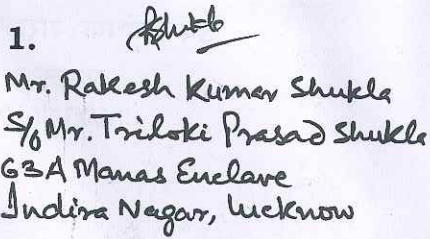 1.
Mr. Rakesh Kumar Shukla
S/o Mr. Triloki Prasad Shukla
63A Manas Enclave
Indira Nagar, Lucknow